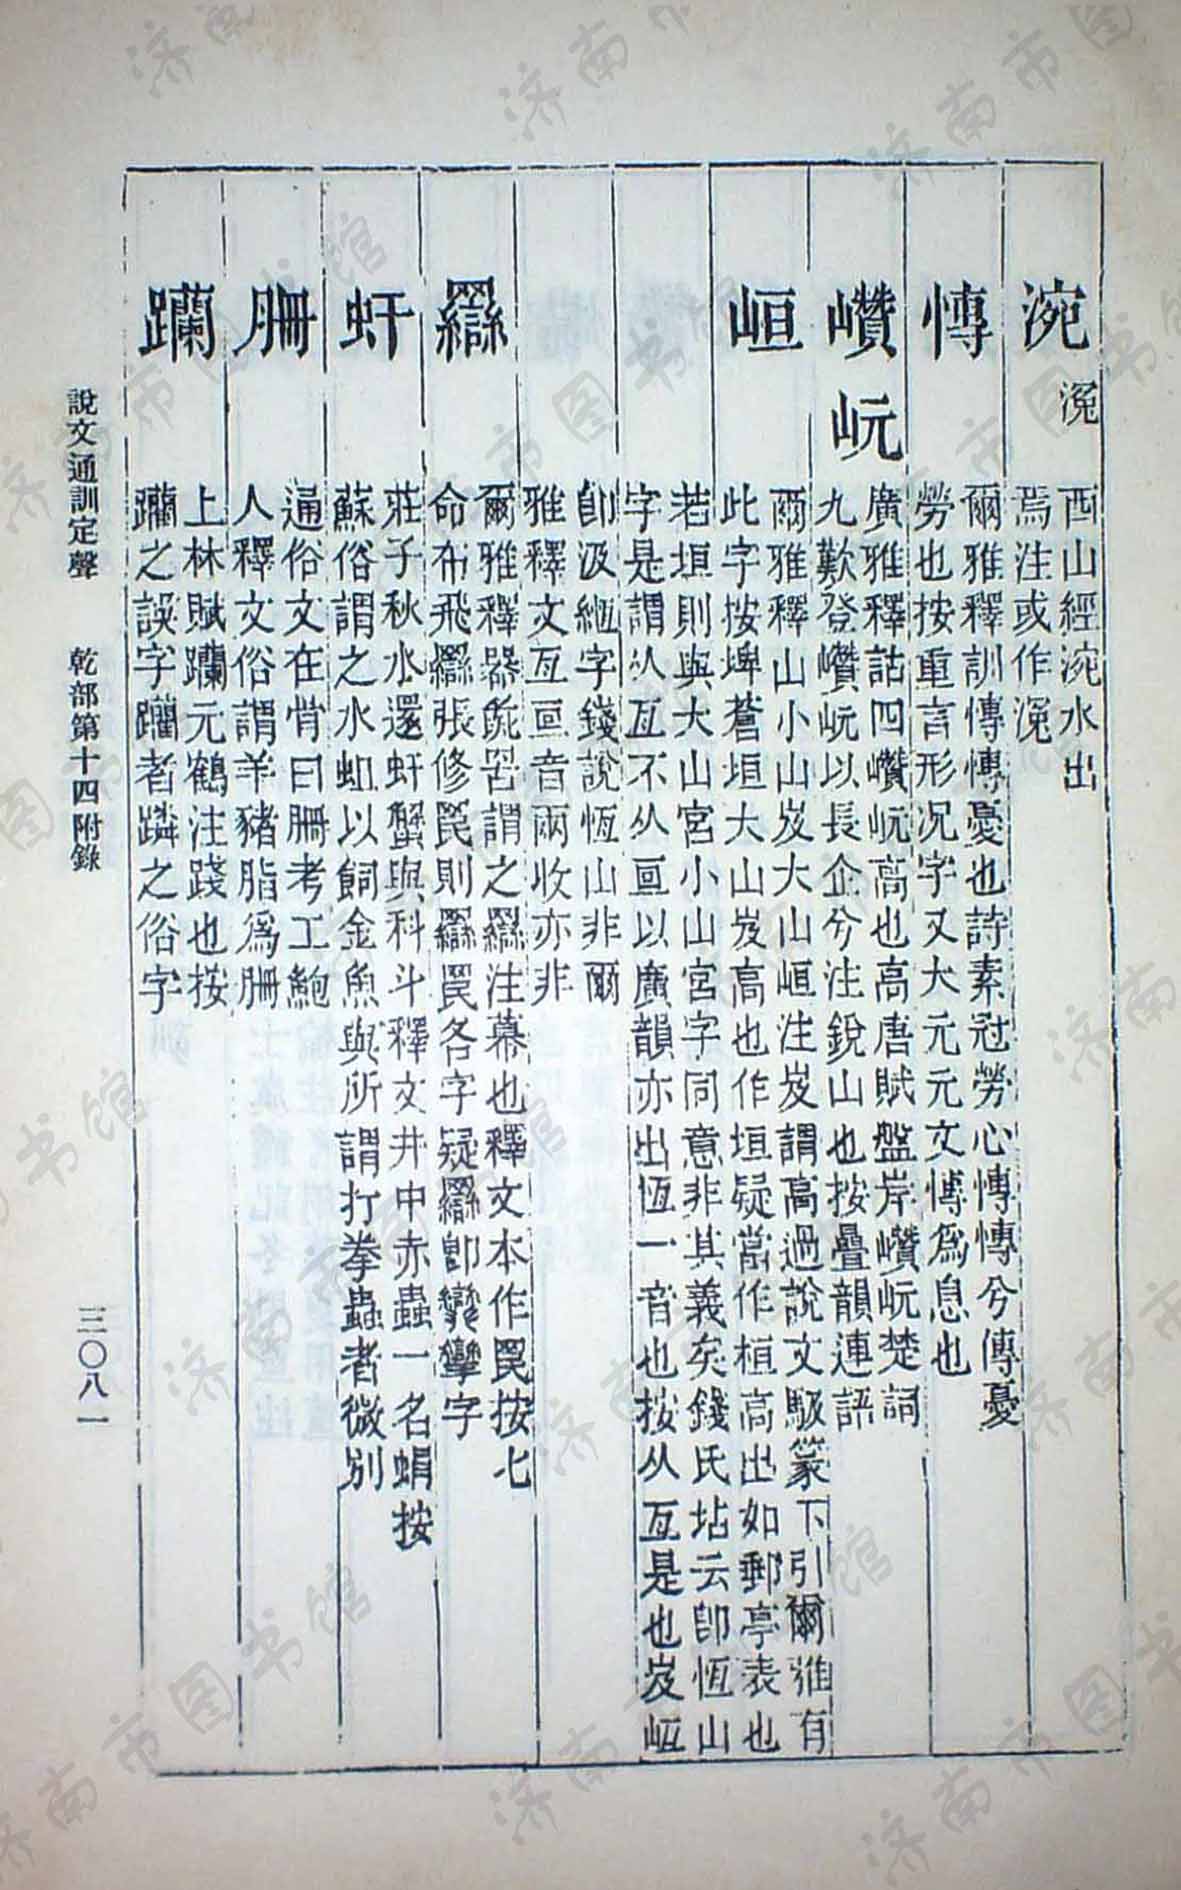 涴 㴧 西山經涴水出
焉注或作㴧
慱 爾雅釋訓慱慱憂也詩素冠勞心慱慱兮傳憂
勞也按重言形況字又大元元文慱爲息也
巑岏 廣雅釋詁四巑岏高也高唐賦盤岸巑岏楚詞
九歎登巑岏以長企兮注銳山也按疊韻連語
峘 爾雅釋山小山岌大山峘注岌謂高過說文馺篆下引爾雅有
此字按埤蒼垣大山岌高也作垣疑當作桓高出如郵亭表也
若垣則與大山宮小山宮字同意非其義矣錢氏坫云卽恆山
字是謂从亙不从亘以廣韻亦出恆一音也按从亙是也岌𡶇
卽汲緪字錢說恆山非爾
雅釋文亙亘音兩收亦非
羉 爾雅釋器彘罟謂之羉注幕也釋文本作罠按七
命布飛羉張修罠則羉罠各字疑羉卽䜌攣字
虷 莊子秋水還虷蟹與科斗釋文井中赤蟲一名蜎按
蘇俗謂之水蛆以飼金魚與所謂打拳蟲者微別
䏝 通俗文在肯曰䏝考工鮑
人釋文俗謂羊豬脂爲䏝
躝 上林賦躝元鶴注踐也按
躝之誤字躪者蹸之俗字
說文通訓定聲 乾部第十四附錄 三〇八一
濟南市图书馆